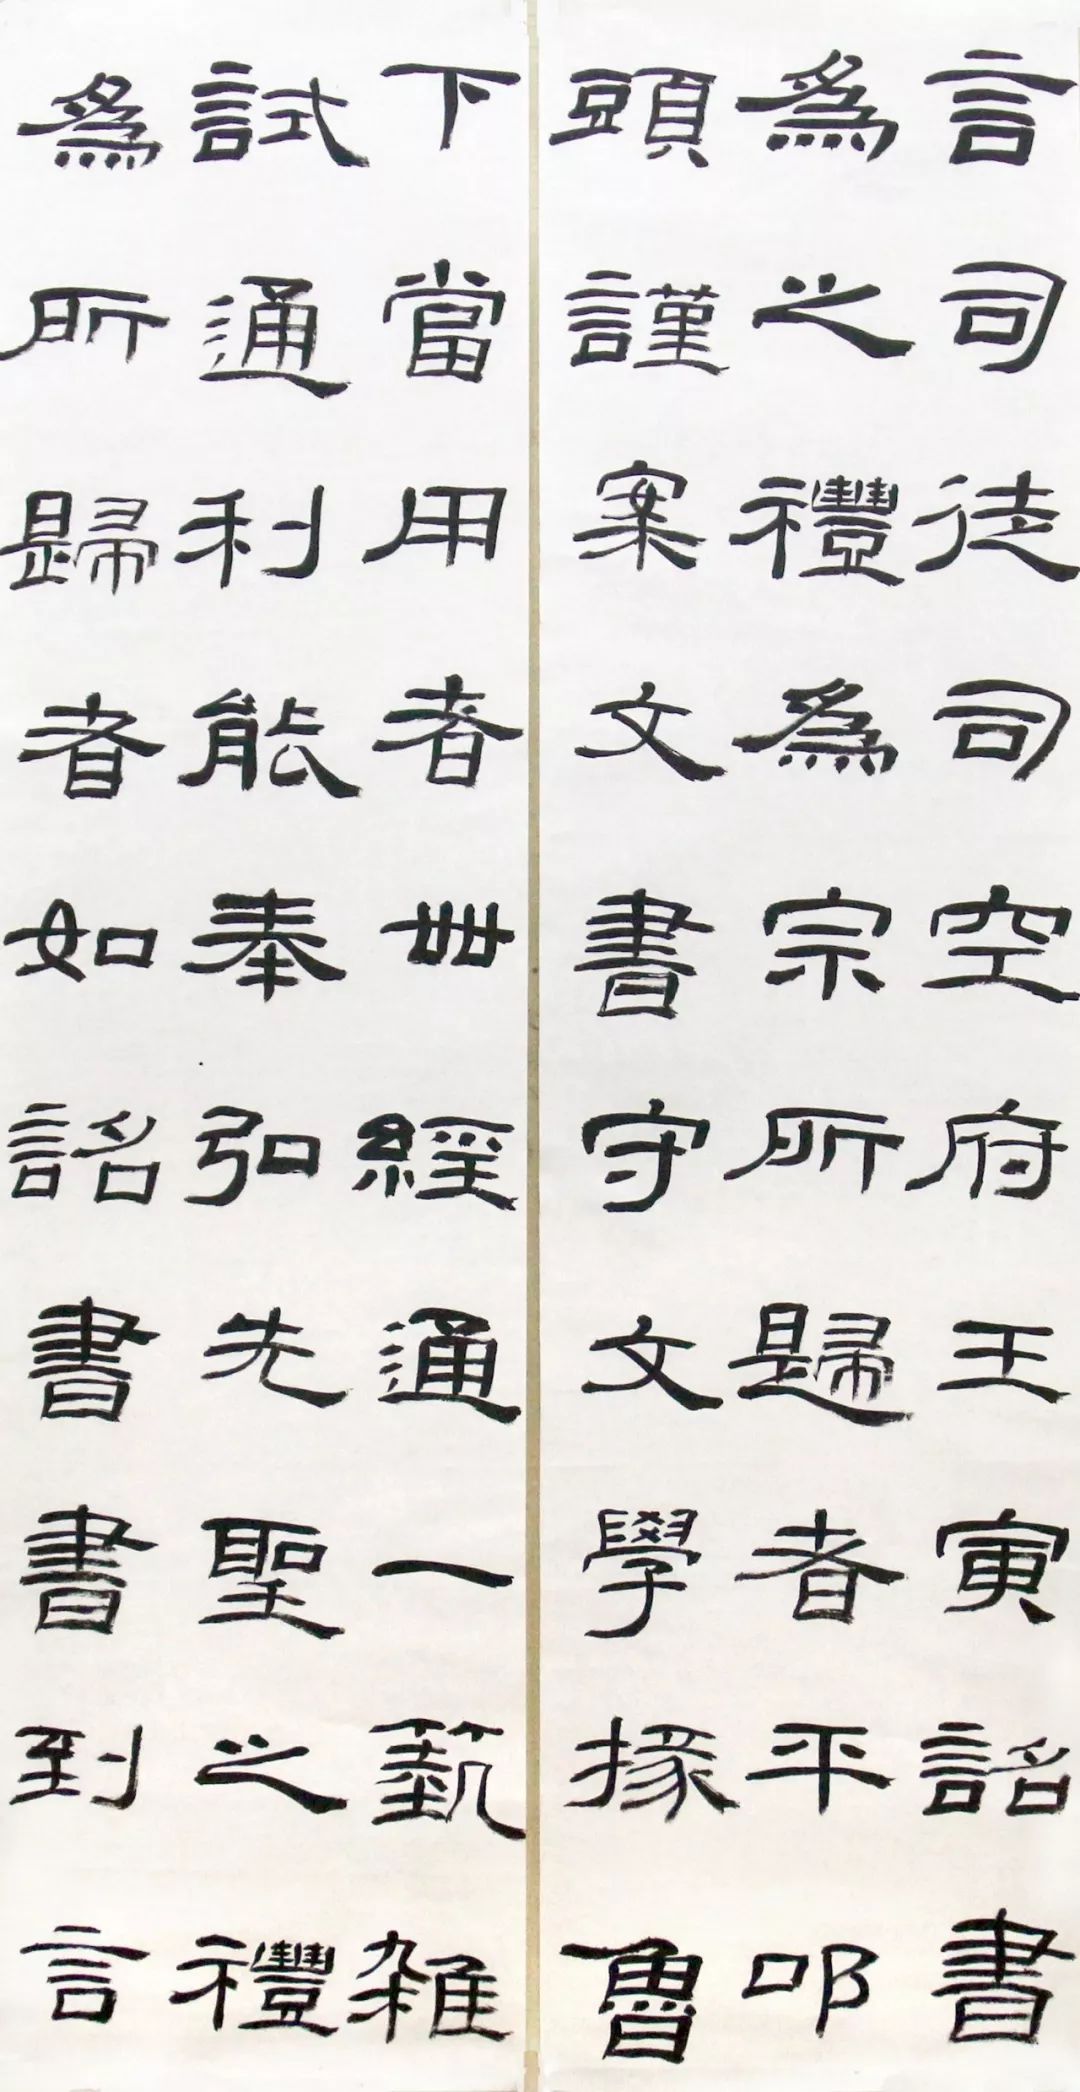 言司徒司空府壬寅詔書
為之禮為宗所歸者平叩
頭謹案文書守文學掾魯
下當用者卌經通一藝雜
試通利能奉弘先聖之禮
為所歸者如詔書書到言